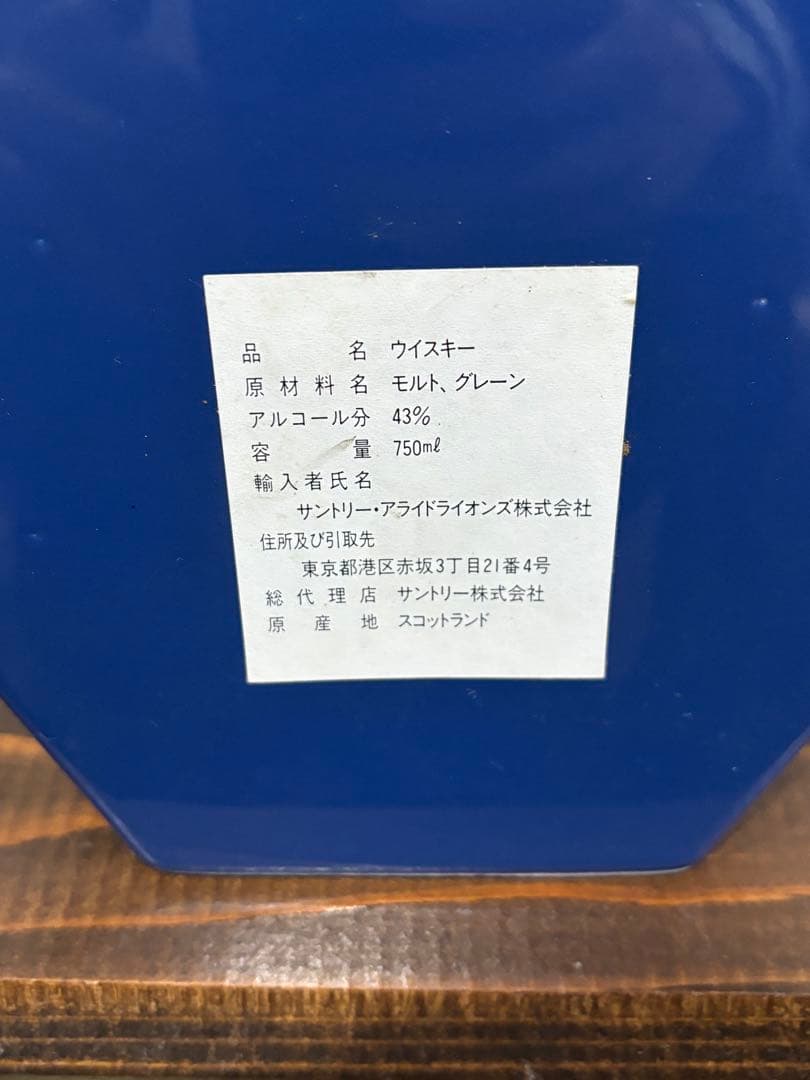 品名 ウイスキー
原材料名 モルト、グレーン
アルコール分 43%
容量 750ml
輸入者氏名
サントリー・アライドライオンズ株式会社
住所及び引取先
東京都港区赤坂3丁目21番4号
総代理店 サントリー株式会社
原産地 スコットランド